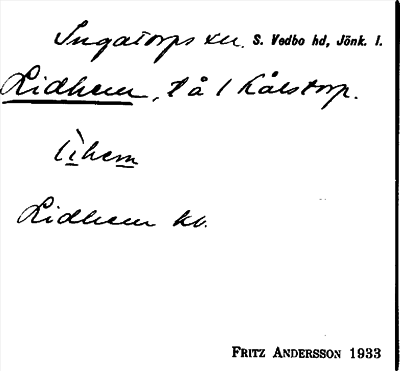 Ingatorps sn. S. Vedbo hd, Jönk. l.
Lidhem, t å 1 Kålstorp.
lìhem
Lidhem kb.
FRITZ ANDERSSON 1933